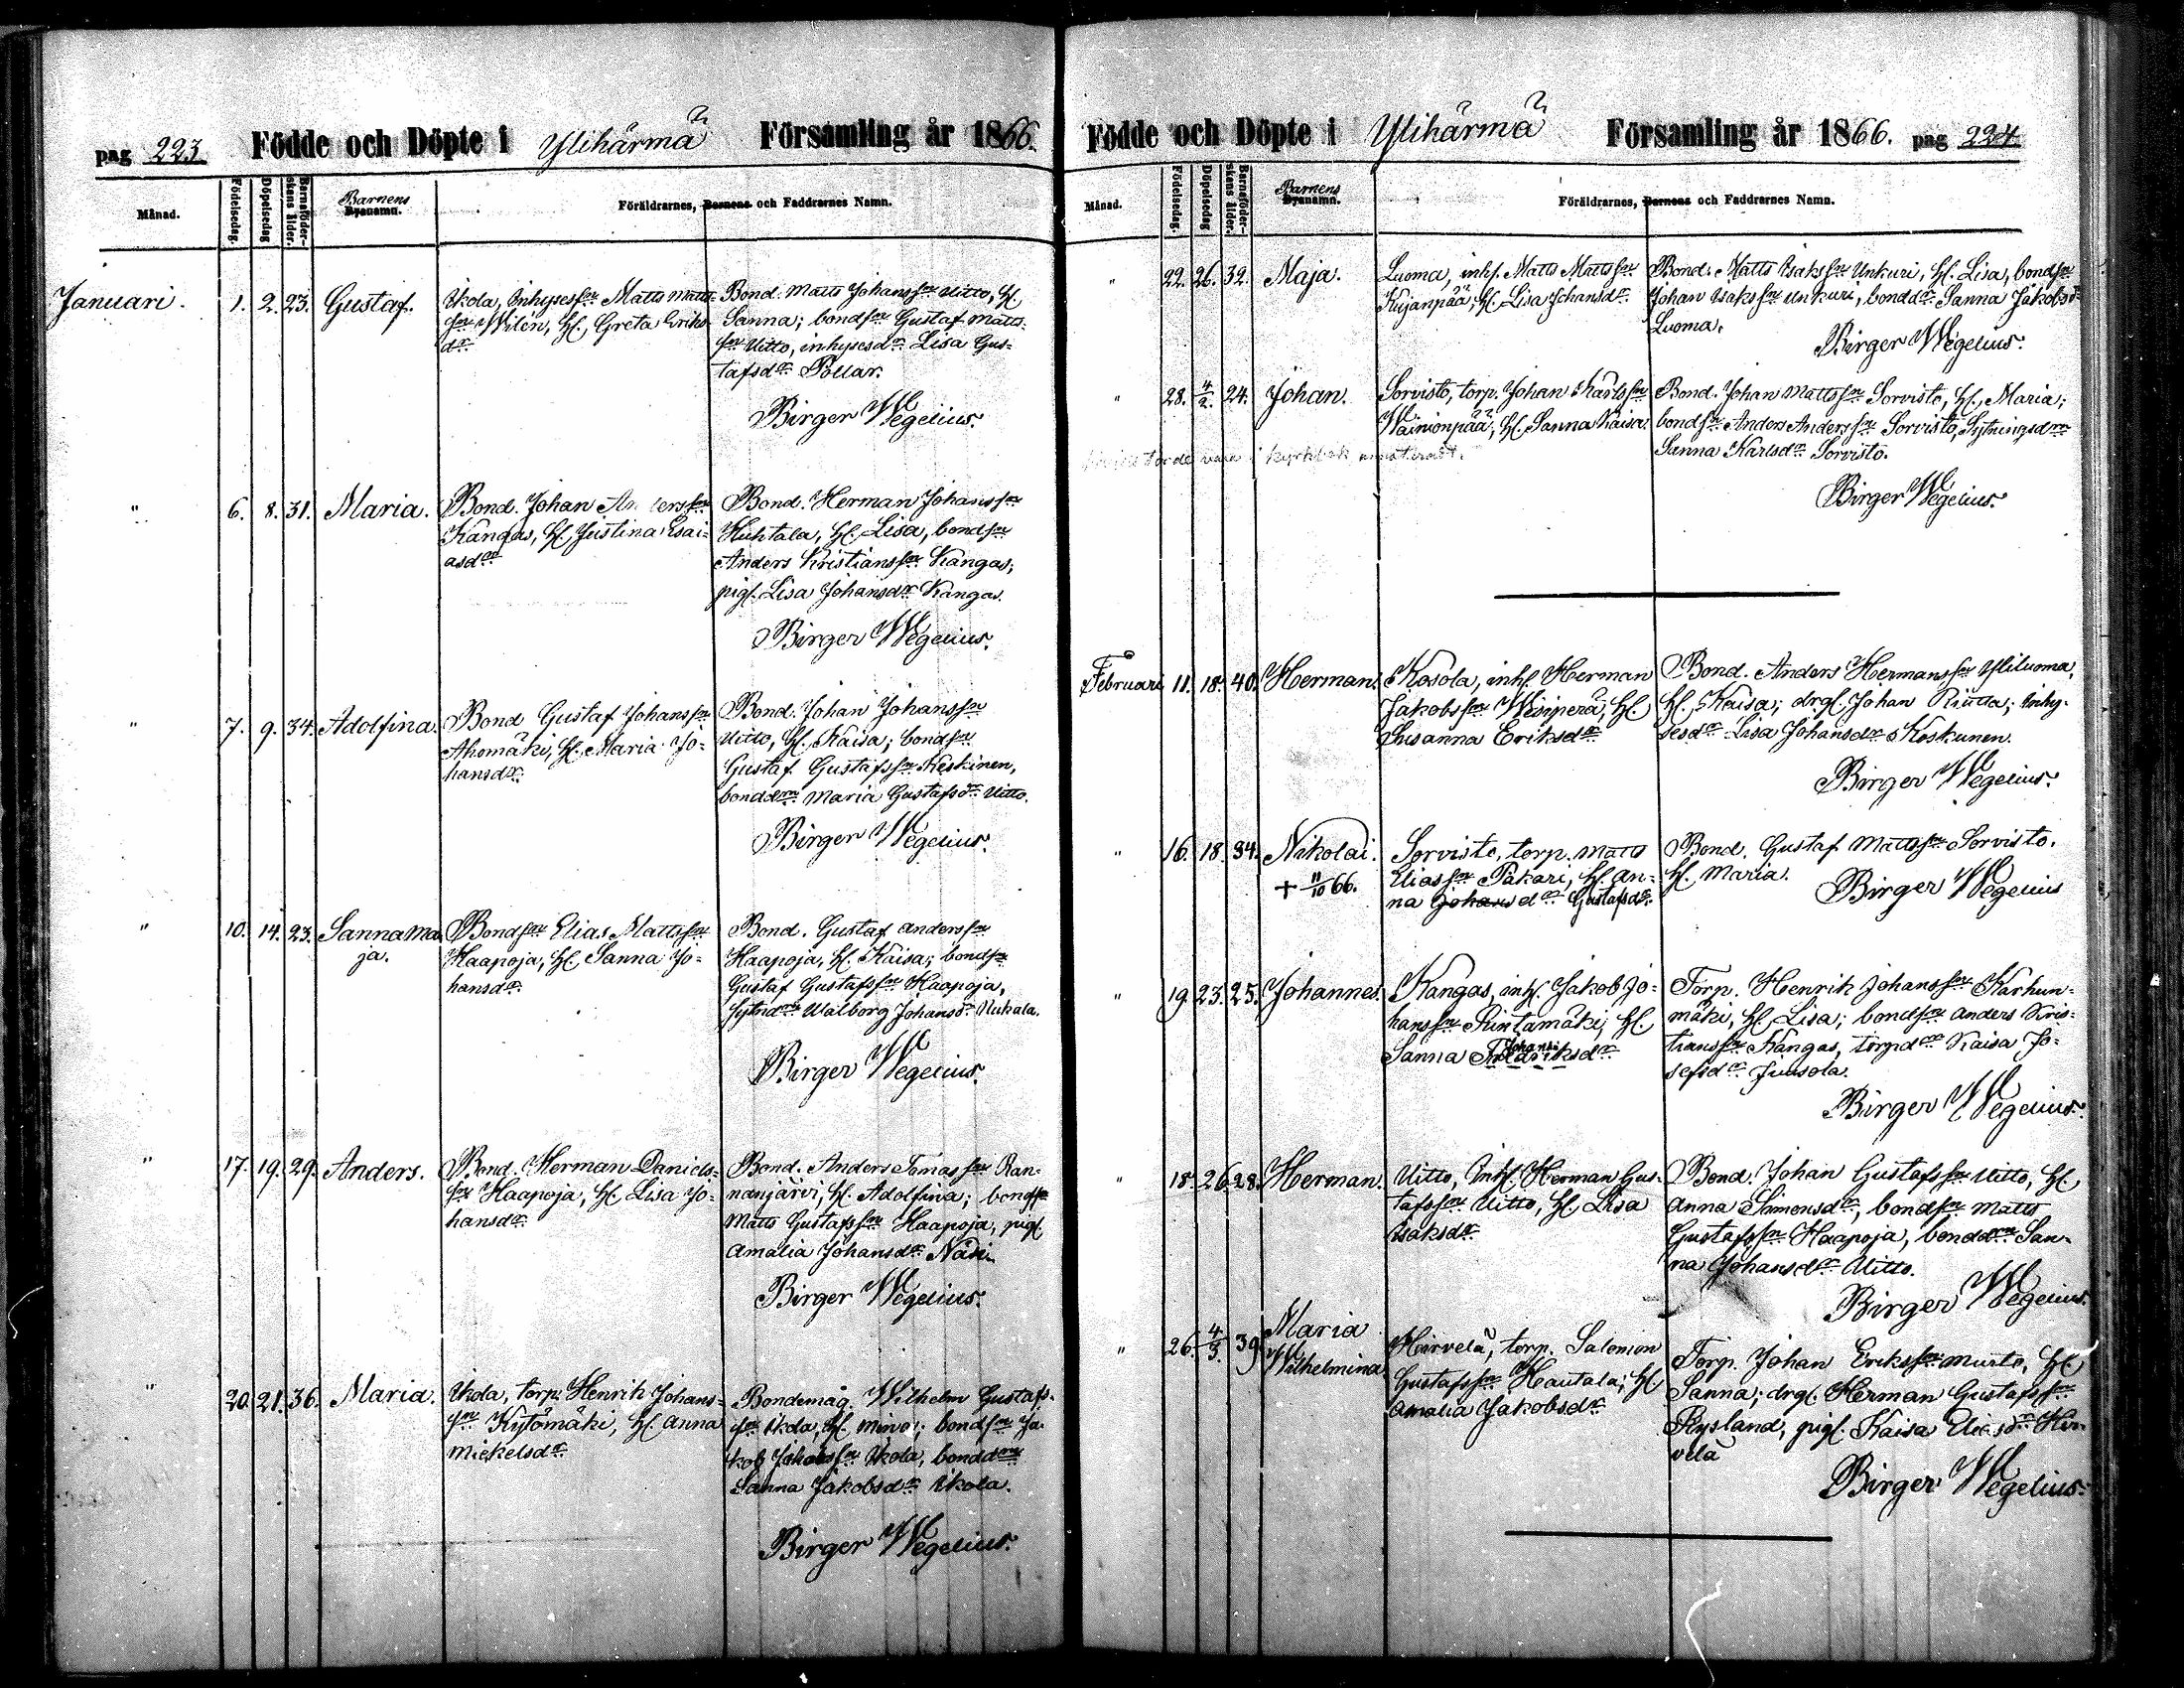 pag 223 Födde och Döpte i Ylihärmä Församling år 1866.
Månad. Födelsedag. Döpelsedag Barnaföderskans ålder. Barnens Byanamn. Föräldrarnes, Barnens och Faddrarnes Namn.
Januari. 1. 2. 23. Gustaf.
Ikola, Inhysesson Matts Matts-
son Wilén, H. Greta Eriks-
dr.
Bond. Matts Johansson Uitto, H.
Sanna; bondson Gustaf Matts-
son Uitto, inhysesdr Lisa Gus-
tafsdr Pollar.
Birger Wegelius.
" 6. 8. 31. Maria.
Bond. Johan Andersson
Kangas, H. Justina Esai-
asdr
Bond. Herman Johansson
Huhtala, H. Lisa, bondson
Anders Kristiansson Kangas;
pig. Lisa Johansdr Kangas.
Birger Wegelius.
" 7. 9. 34. Adolfina.
Bond Gustaf Johansson
Ahomäki, H. Maria Jo-
hansdr.
Bond. Johan Johansson
Uitto, H. Kaisa; bondson
Gustaf Gustafsson Keskinen,
bonddrn Maria Gustafsdr Uitto.
Birger Wegelius.
" 10. 14. 23. Sanna Ma-
ja.
Bondson Elias Mattsson
Haapoja, H. Sanna Jo-
hansdr.
Bond. Gustaf Andersson
Haapoja, H. Kaisa; bondson
Gustaf Gustafsson Haapoja,
sytndrn Walborg Johansdr Nukala.
Birger Wegelius.
" 17. 19. 29. Anders.
Bond. Herman Daniels-
son Haapoja, H. Lisa Jo-
hansdr.
Bond. Anders Tomasson Ran-
nanjärvi, H. Adolfina; bondson
Matts Gustafsson Haapoja, pig.
Amalia Johansdr
Birger Wegelius.
" 20. 21. 36. Maria.
Ikola, torp. Henrik Johans-
son Kytömäki, H. Anna
Mickelsdr.
Bondemåg. Wilhelm Gustafs-
son Ikola, H. Minva; bondson Ja-
kob Jakobsson Ikola, bonddrn
Sanna Jakobsdr Ikola.
Birger Wegelius.
Födde och Döpte i Ylihärmä Församling år 1866. pag 224
Månad. Födelsedag. Döpelsedag Barnaföderskans ålder. Barnens Byanamn. Föräldrarnes, Barnens och Faddrarnes Namn.
" 22. 26. 32. Maja.
Luoma, inh. Matts Mattsson
Kujanpää, H. Lisa Johansdr
Bond. Matts Isaksson Unkuri, H. Lisa, bondson
Johan Isaksson Unkuri, bonddr Sanna Jakobsdr
Luoma.
Birger Wegelius.
" 28. 4/2. 24. Johan.
Sorvisto, torp. Johan Karlsson
Wainionpää, H. Sanna Kaisa
Bond. Johan Mattsson Sorvisto, H. Maria;
bondson Anders Andersson Sorvisto, Sytningsdrn
Sanna Karlsdr Sorvisto.
torde vara i kyrkbok
Birger Wegelius.
Februari 11. 18. 40. Herman.
Kosola, inh. Herman
Jakobsson Wesiperä, H.
Susanna Eriksdr
Bond. Anders Hermansson Yliluoma,
H. Kaisa; drg. Johan Riutta; Inhy-
sesdr Lisa Johansdr Koskunen.
Birger Wegelius.
" 16. 18. 34. Nikolai.
+ 11/10 66.
Sorvisto, torp. Matts
Eliasson Pakari, H. An-
na Johansdr Gustafsdr.
Bond. Gustaf Mattsson Sorvisto.
H. Maria.
Birger Wegelius
" 19. 23. 25. Johannes.
Kangas, inh. Jakob Jo-
hansson Rintamäki, H.
Johans
Sanna Fredriksdr
Torp. Henrik Johansson Karhun-
mäki, H. Lisa; bondson Anders Kris-
tiansson Kangas, torpdrn Kaisa Jo-
sefsdr Juusola.
Birger Wegelius.
" 18. 26. 28. Herman.
Uitto, Inh. Herman Gus-
tafsson Uitto, H. Lisa
Isaksdr.
Bond. Johan Gustafsson Uitto, H.
Anna Simonsdr, bondson Matts
Gustafsson Haapoja, bonddrn San-
na Johansdr Uitto.
Birger Wegelius.
" 26. 4/3. 39. Maria
Wilhelmina
Hirvelä, torp. Salomon
Gustafsson Hautala; H.
Amalia Jakobsdr
Torp. Johan Eriksson Murto, H.
Sanna; drg. Herman Gustafsson
Rysland, pig. Kaisa Eliasdr Hir-
velä
Birger Wegelius.